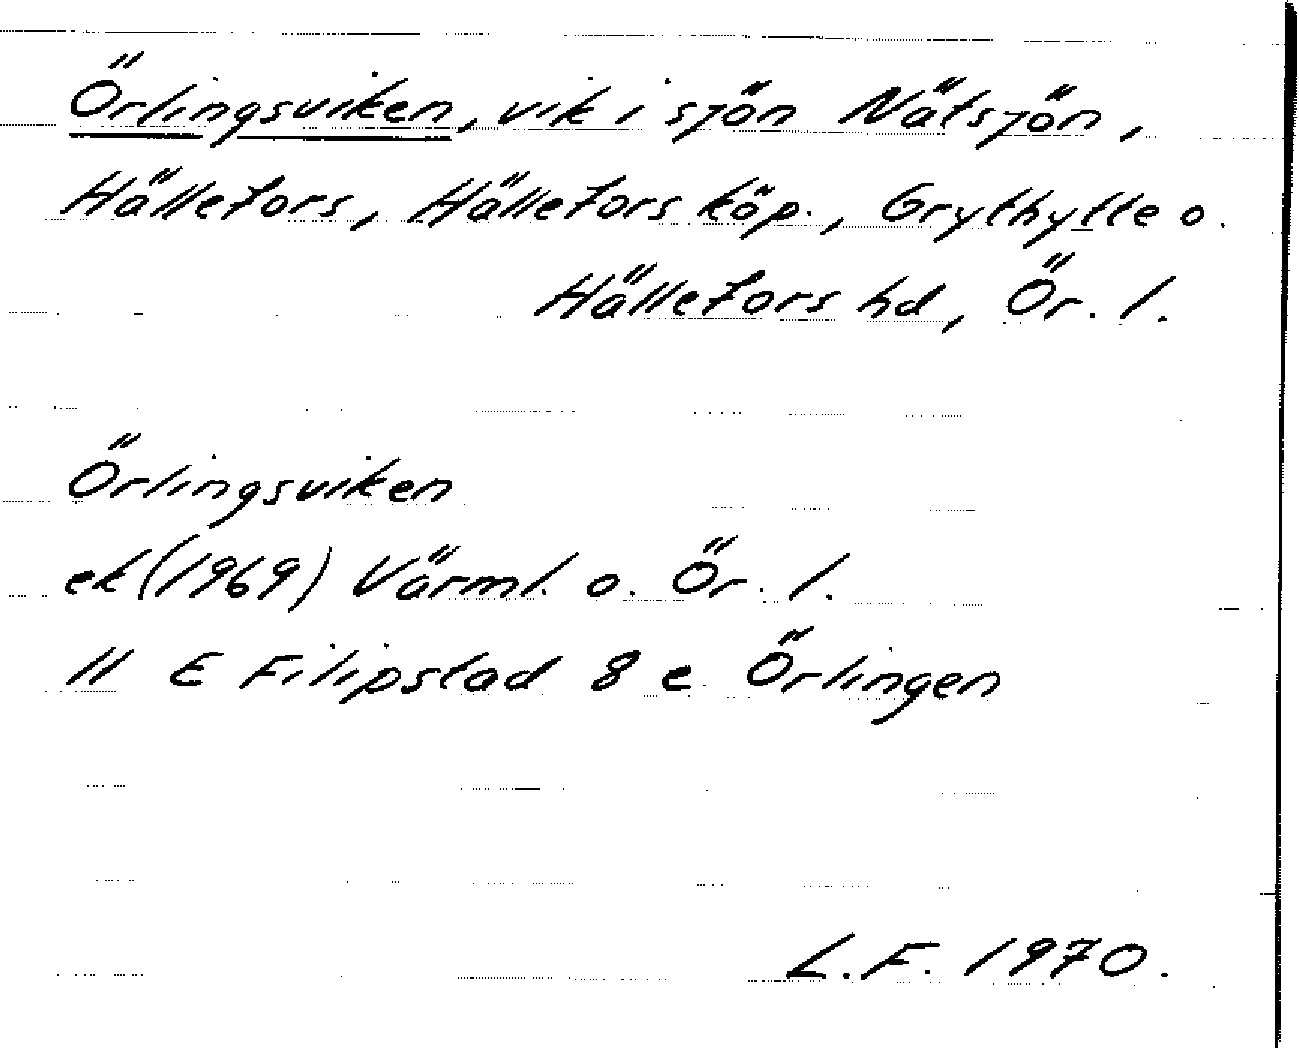 Örlingsviken, vik i sjön Nätsjön,
Hällefors, Hällefors köp., Grythytte o.
Hällefors hd, Ör. l.
Örlingsviken
ek (1969) Värml. o. Ör. l.
11 E Filipstad 8 e Örlingen
L.F. 1970.